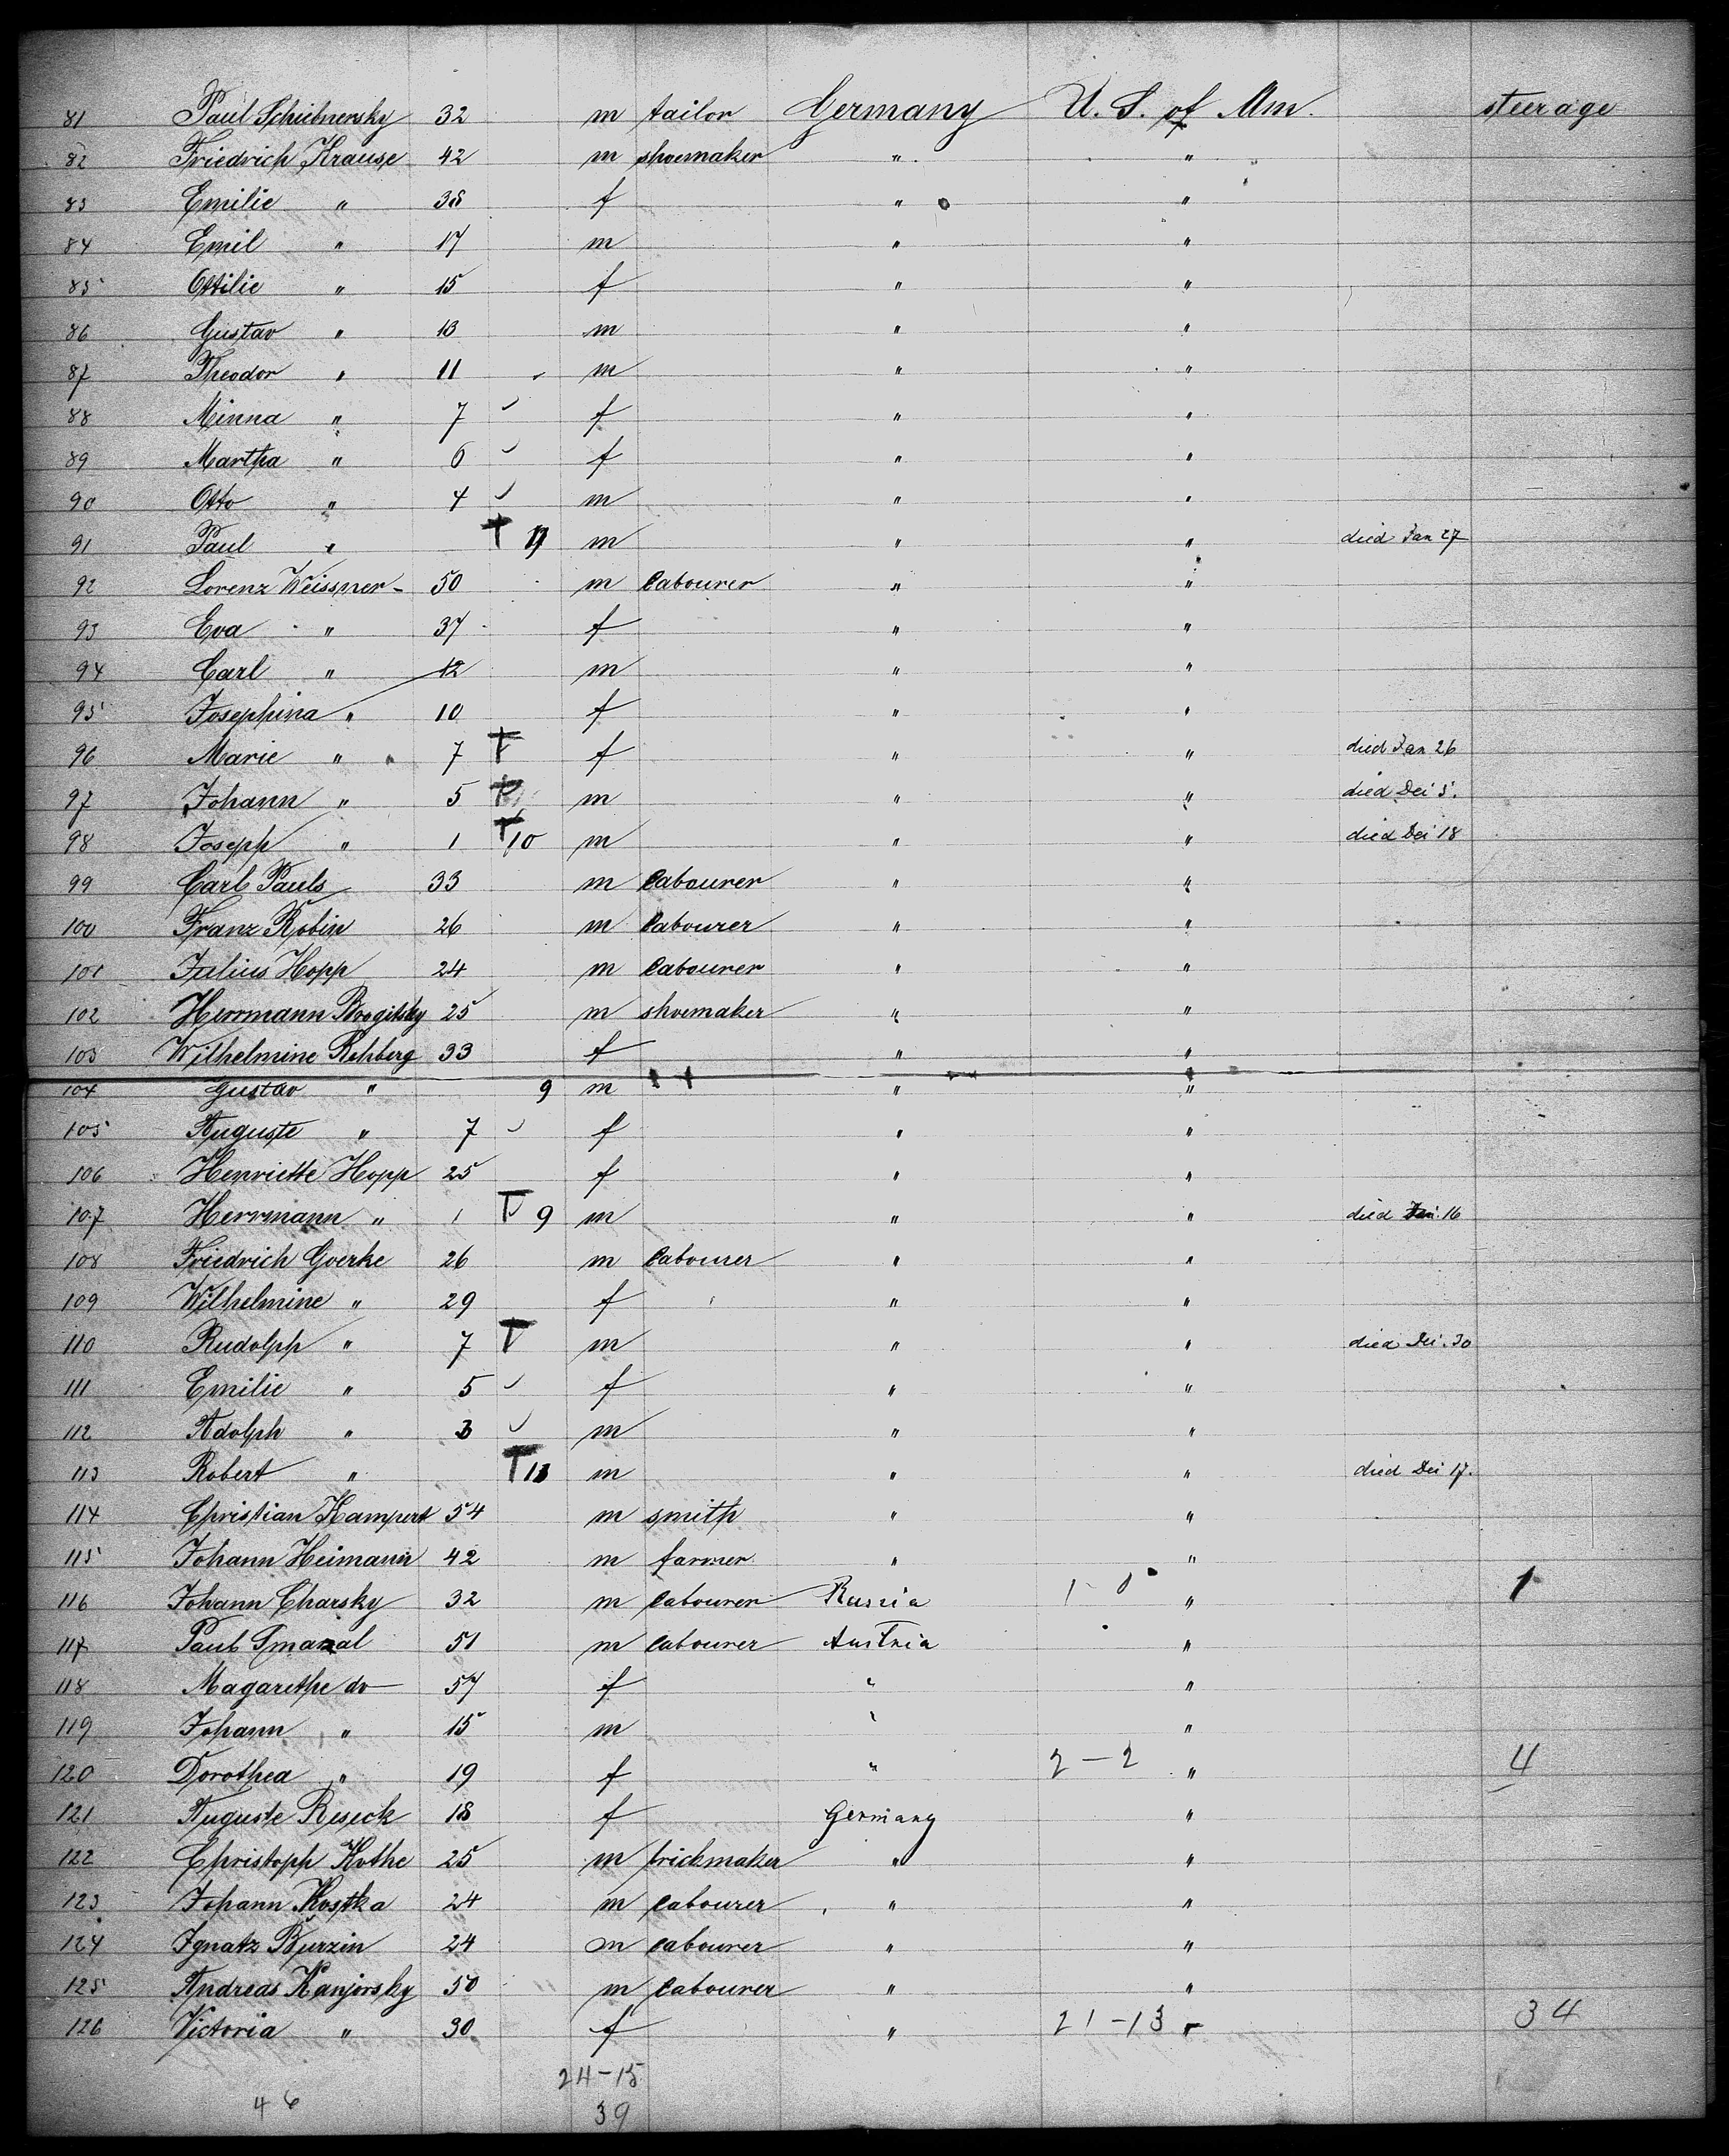 81 Paul Schiebnersky 32 m tailor Germany U. S. of Am. steerage
82 Friedrich Krause 42 m shoemaker " "
83 Emilie " 38 f " "
84 Emil " 17 m " "
85 Ottilie " 15 f " "
86 Gustav " 13 m " "
87 Theodor " 11 m " "
88 Minna " 7 f " "
89 Martha " 6 f " "
90 Otto " 4 m " "
91 Paul " T m " " died Jan 27
92 Lorenz Weissner 50 m labourer " "
93 Eva " 37 f " "
94 Carl " 12 m " "
95 Josephina " 10 f " "
96 Marie " 7 T f " " died Jan 26
97 Johann " 5 T m " " died Dei 5.
98 Joseph " 1 T 10 m " " died Dei 18
99 Carl Pauls 33 m labourer " "
100 Franz Robin 26 m labourer " "
101 Julius Hopp 24 m labourer " "
102 Herrmann 25 m shoemaker " "
103 Wilhelmine Rehberg 33 f " "
104 Gustav " 9 m " "
105 Auguste " 7 f " "
106 Henriette Hopp 25 f " "
107 Herrmann " 1 T 9 m " " died 16
108 Friedrich Goerke 26 m labourer " "
109 Wilhelmine " 29 f " "
110 Rudolph " 7 T m " " died Dei. 30
111 Emilie " 5 f " "
112 Adolph " 3 m " "
113 Robert " T 11 m " " died Dei 17.
114 Christian Kampert 54 m smith " "
115 Johann Heimann 42 m farmer " "
116 Johann Charsky 32 m labourer Russia 1 - 0 " 1
117 Paul 51 m labourer Austria "
118 Magarethe do 57 f " "
119 Johann " 15 m " "
120 Dorothea " 19 f " 2 - 2 " 4
121 Auguste Reseck 18 f Germany "
122 Christoph Kothe 25 m brickmaker " "
123 Johann Kostka 24 m labourer " "
124 Ignatz Burzin 24 m labourer " "
125 Andreas Kanjorsky 50 m labourer " "
126 Victoria " 30 f " 21 - 13 " 34
24 - 15
46 39